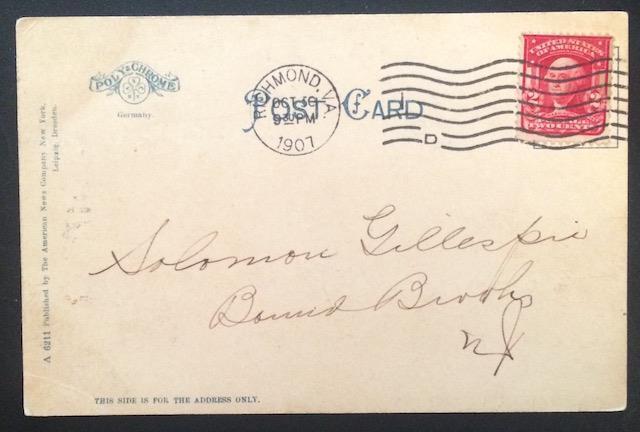 POLY-CHROME
Germany.
POST CARD
RICHMOND, VA.
OCT 19
930 PM
1907
D
UNITED STATES
OF AMERICA
2 2
TWO CENTS
Solomon Gillespie
Bound Brook
NJ
A 6211 Published by The American News Company New York.
Leipzig, Dresden.
THIS SIDE IS FOR THE ADDRESS ONLY.